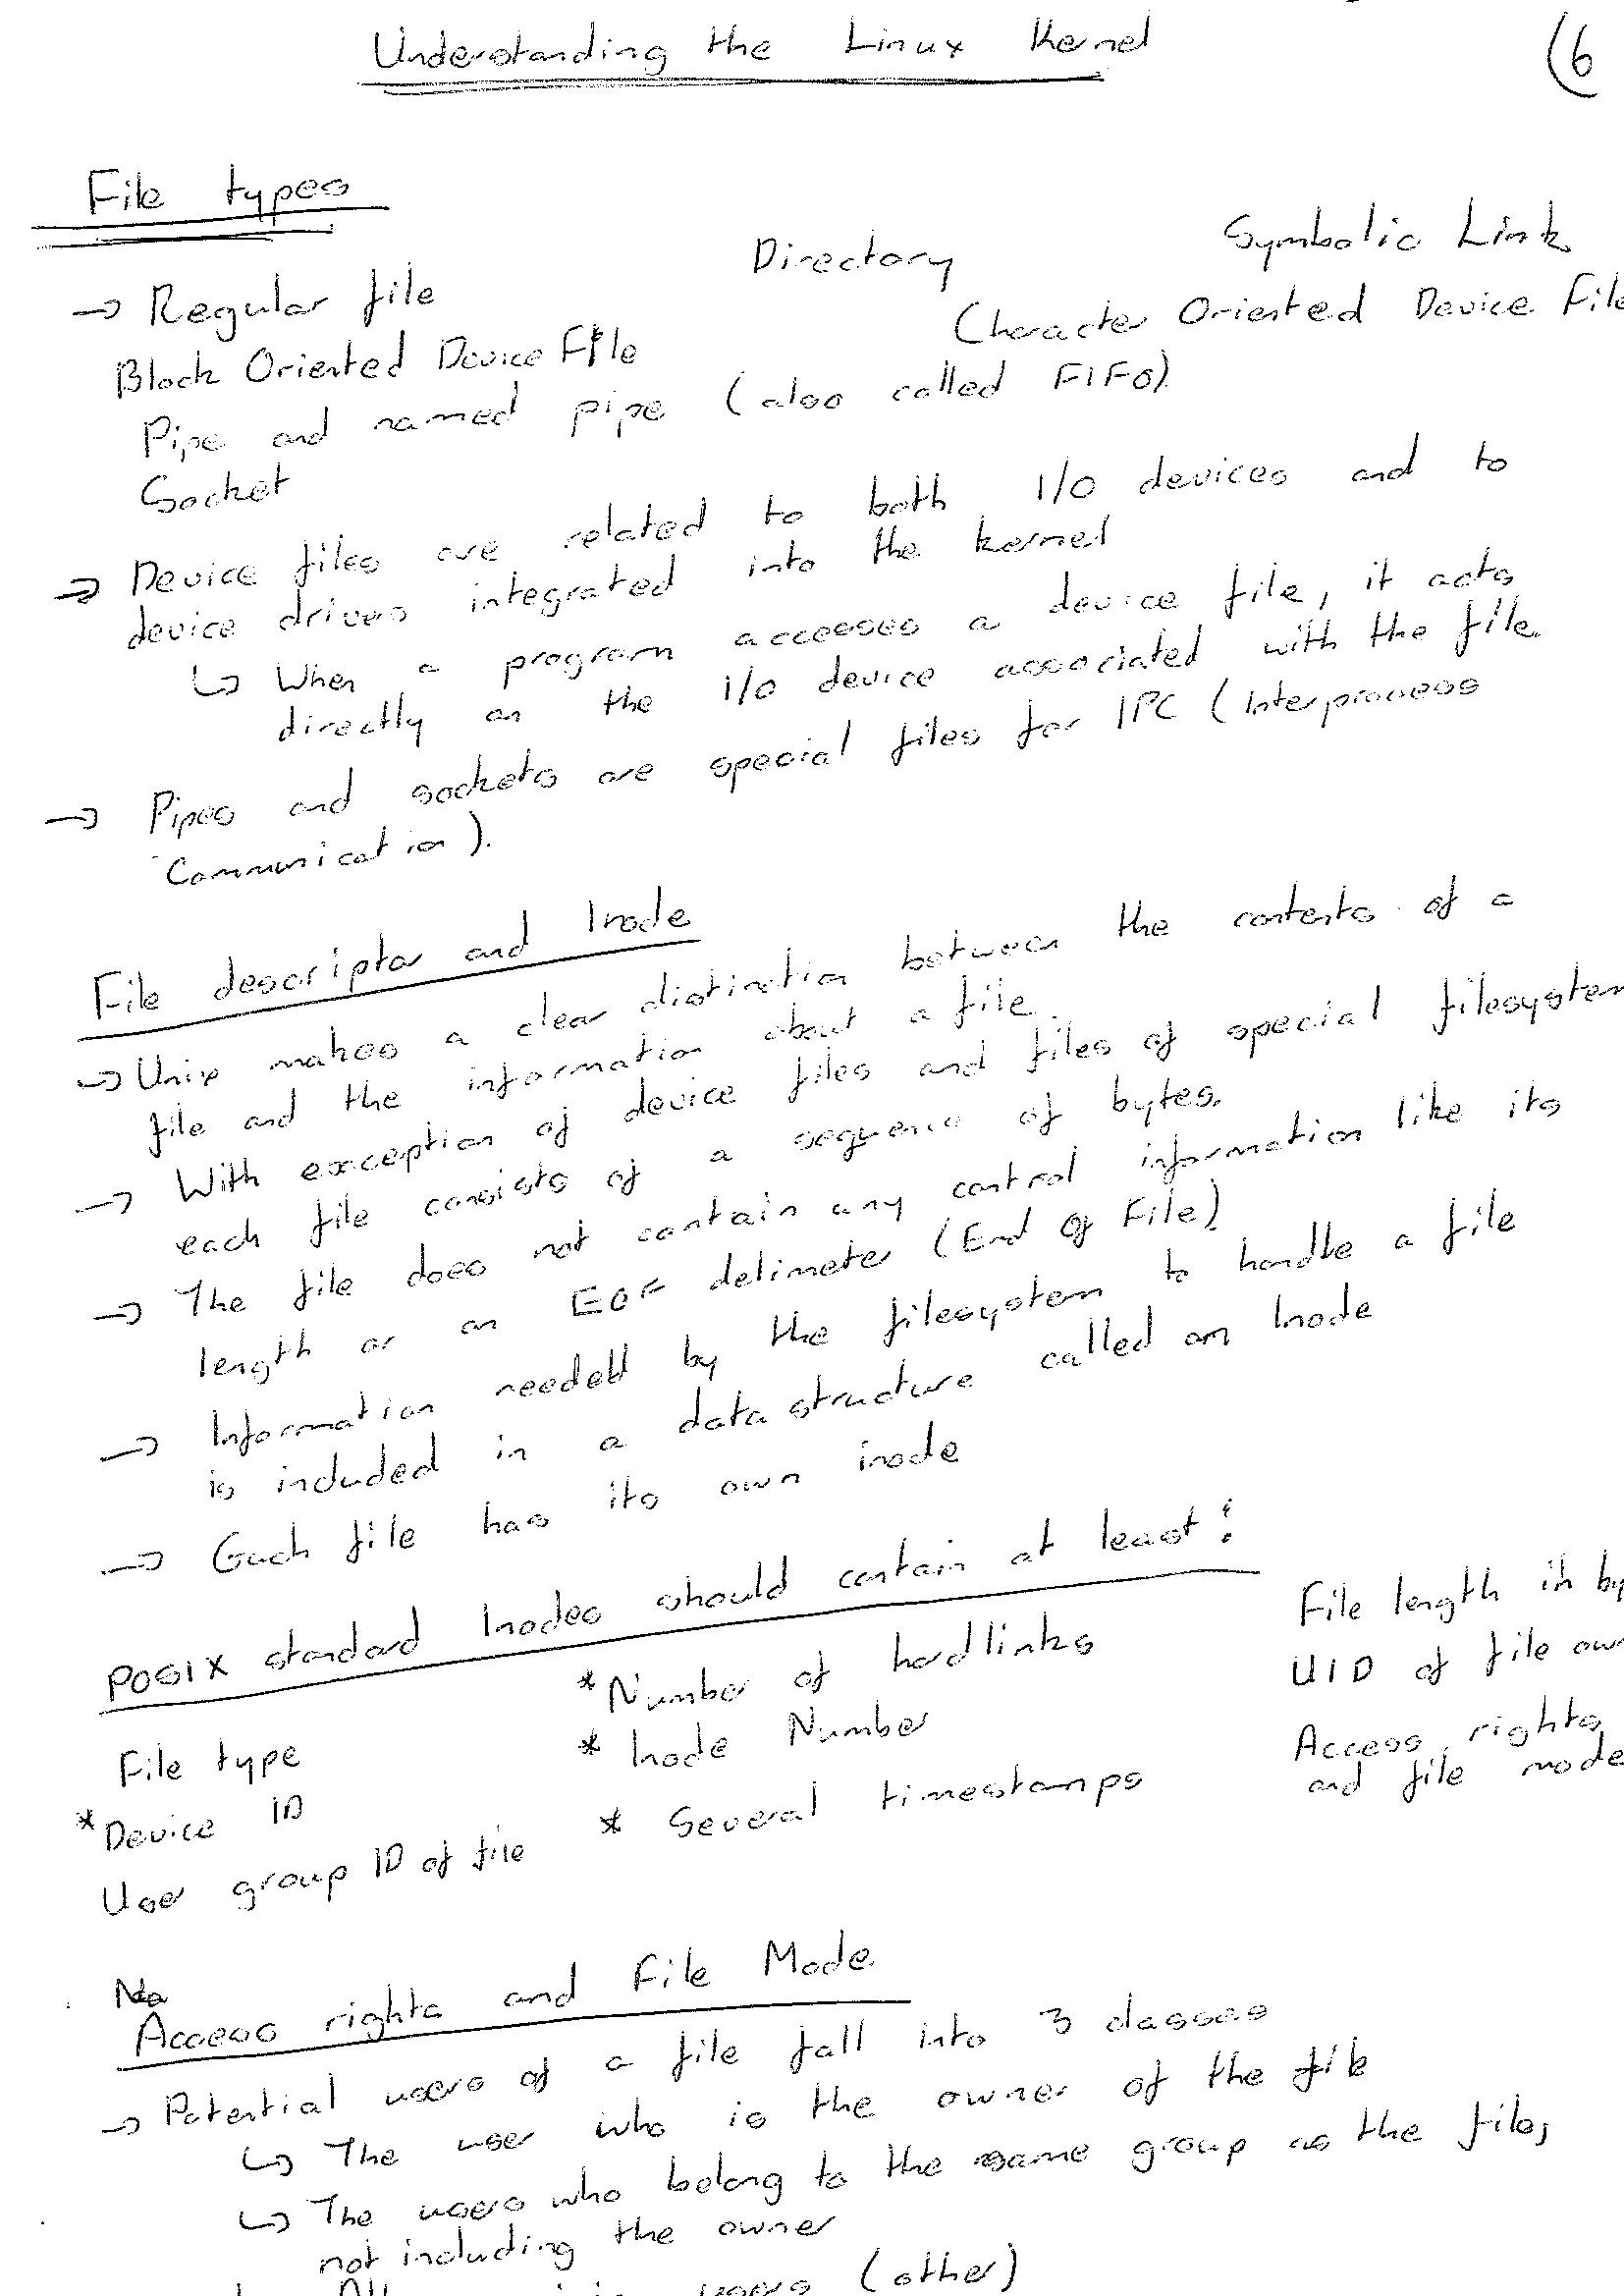 Understanding the Linux Kernel
(6
File types
→ Regular file Directory Symbolic Link
Block Oriented Device File Character Oriented Device File
Pipe and named pipe (also called FIFO)
Socket
→ Device files are related to both I/O devices and to
device drives integrated into the kernel
↳ When a program accesses a device file, it acts
directly on the I/O device associated with the file.
→ Pipes and sockets are special files for IPC (Interprocess
Communication).
File descriptor and Inode
→ Unix makes a clear distinction between the contents of a
file and the information about a file.
→ With exception of device files and files of special filesystem
each file consists of a sequence of bytes.
→ The file does not contain any control information like its
length or an EOF delimeter (End Of File).
→ Information needed by the filesystem to handle a file
is included in a data structure called an Inode
→ Each file has its own inode
POSIX standard Inodes should contain at least:
File type *Number of hardlinks File length in by
*Device ID * Inode Number UID of file own
User group ID of file * Several timestamps Access rights
and file mode
No
Access rights and File Mode
→ Potential users of a file fall into 3 classes
↳ The user who is the owner of the file
↳ The users who belong to the same group as the file,
not including the owner
↳ All users (other)